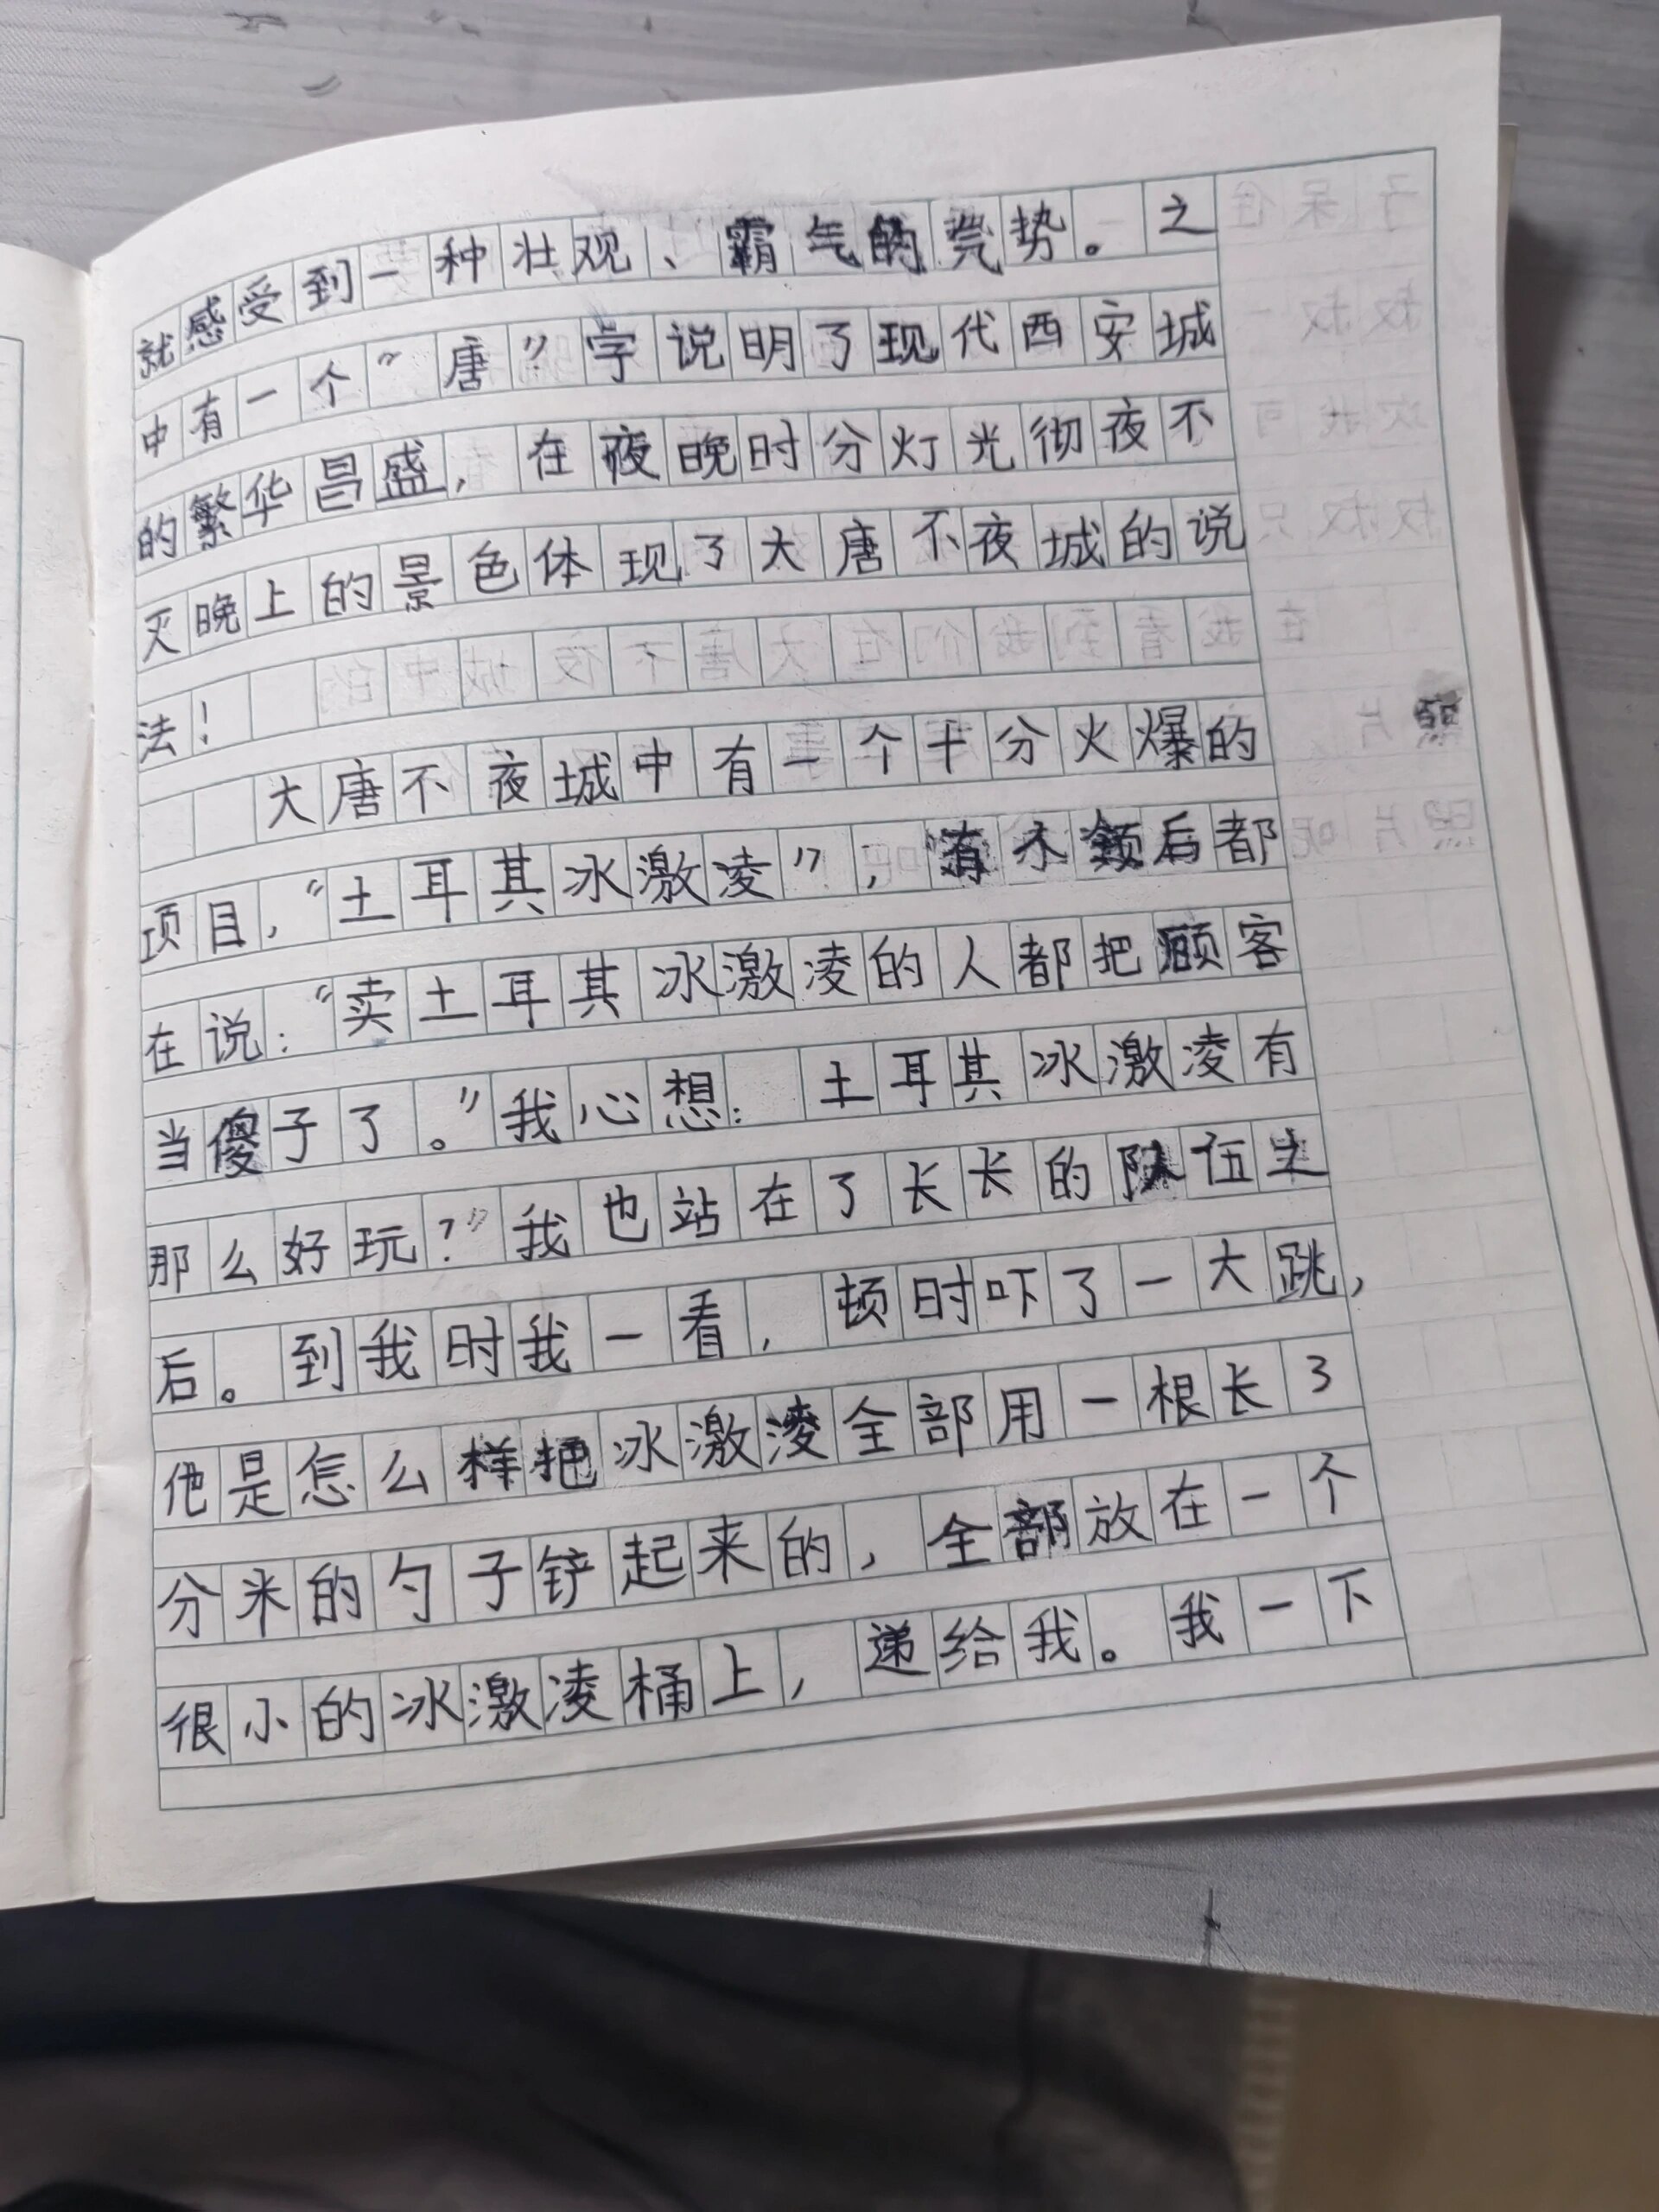 就感受到一种壮观、霸气的凳势。之
中有一个“唐”字说明了现代西安城
的繁华昌盛，在夜晚时分灯光彻夜不
灭晚上的景色体现了大唐不夜城的说
法！
大唐不夜城中有一个十分火爆的
项目，“土耳其冰激凌”，后都
在说：“卖土耳其冰激凌的人都把顾客
当傻子了。”我心想： 土耳其冰激凌有
那么好玩？”我也站在了长长的队伍之
后。到我时我一看，顿时吓了一大跳，
他是怎么样把冰激凌全部用一根长3
分米的勺子铲起来的，全部放在一个
很小的冰激凌桶上，递给我。我一下